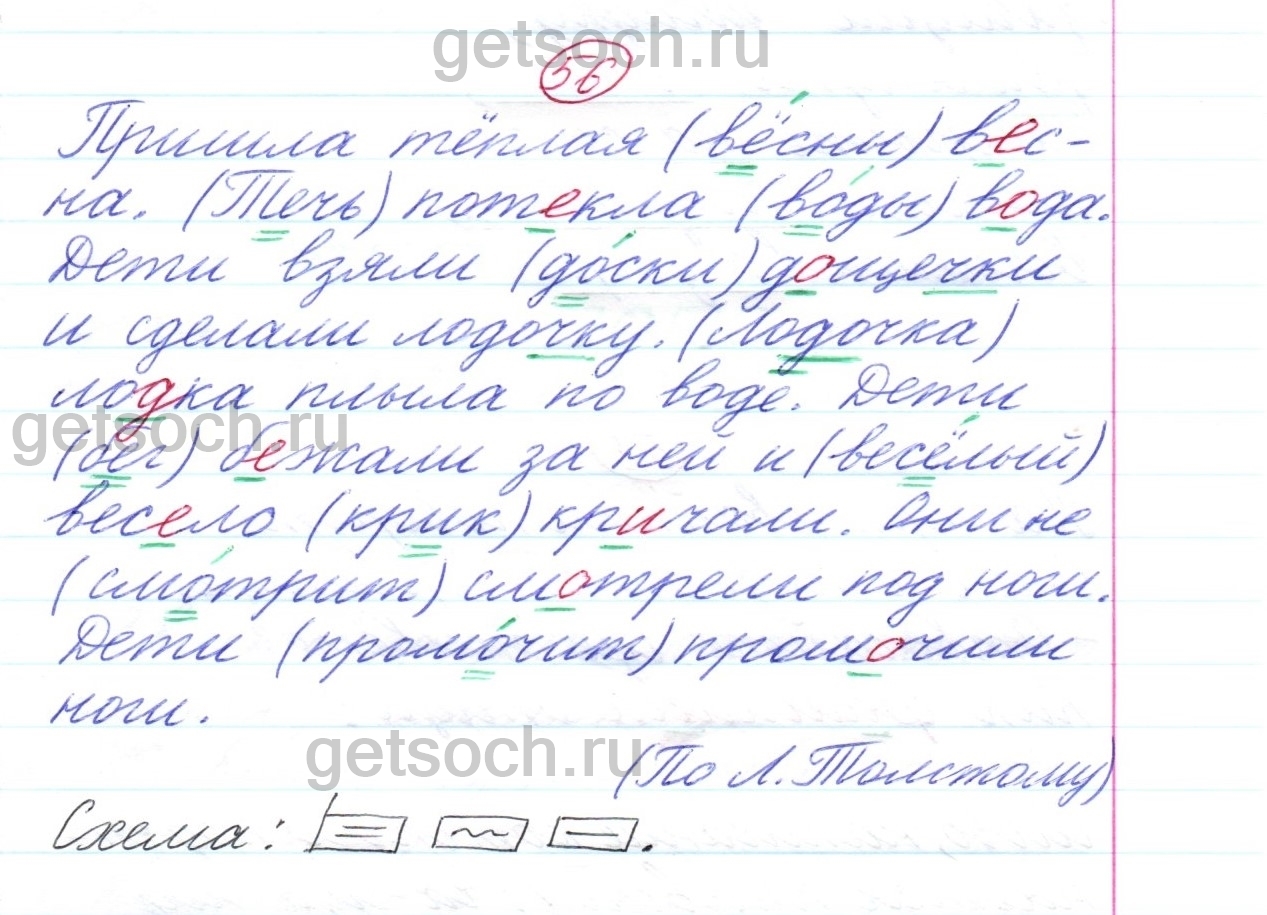 getsoch.ru
56
Пришла тёплая (вёсны) вес-
на. (Течь) потекла (воды) вода.
Дети взяли (доски) дощечки
и сделали лодочку. (Лодочка)
лодка плыла по воде. Дети
getsoch.ru
(бег) бежали за ней и (весёлый)
весело (крик) кричали. Они не
(смотрит) смотрели под ноги.
Дети (промочит) промочили
ноги.
getsoch.ru
(По Л. Толстому)
Схема: